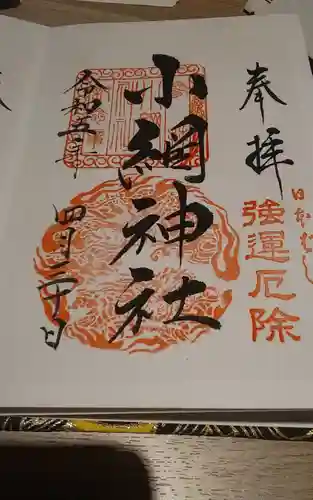 奉拝
日本ば
強運厄除
小網神社
令和五年
四月二十日